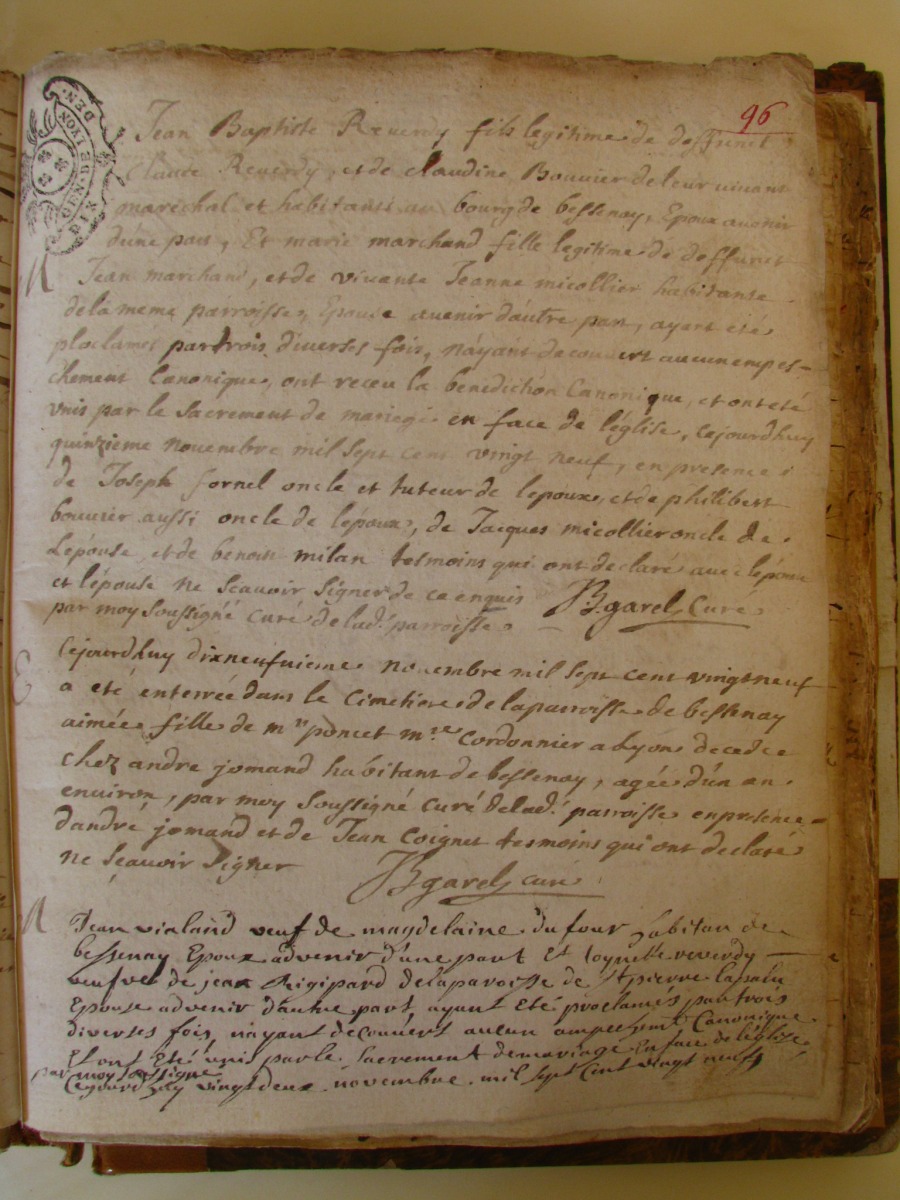 96
GEN. DE LYON
DEN.
Jean Baptiste Reverdy fils legitime de deffunct
Claude Reverdy, et de claudine Bouvier de leur vivant
maréchal et habitants au bourg de bessenay, Epoux avenir
dune part, Et marie marchand fille legitime de deffunct
M
Jean marchand, et de vivante Jeanne micollier habitante
de la meme parroisse, Epouse avenir dautre part, ayant eté
ploclames par trois diverses fois, nayant decouvert aucun empes-
chement Canonique, ont receu la benediction Canonique, et ont eté
vnis par le Sacrement de mariege en face de léglise, cejourdhuy
quinzieme novembre mil sept cent vingt neuf, en presence
de Joseph fornel oncle et tuteur de lepoux, et de philibert
bouvier aussi oncle de lépoux, de Jacques micollier oncle de
Lepouse, et de benoit milan tesmoins qui ont declaré avec lépoux
et lépouse ne Scauoir Signer de ce enquis JBgarel Curé
par moy Soussigné curé de lad. parroisse
E
Cejourdhuy dixneufuieme novembre mil sept cent vingt neuf
a eté enterrée dans le Cimetiere de la parroisse de bessenay
aimée fille de mr poncet mre Cordonnier a Lyon decedee
chez andre jomand habitant de bessenay, agée d'un an
environ, par moy Soussigné Curé de lad. parroisse en presence
dandré jomand et de Jean Coignet tesmoins qui ont declaré
ne Scauoir Signer JBgarel curé
M
Jean vialand veuf de magdelaine du four habitan de
bessenay Epoux advenir d'une part Et toynette reverdy
veufve de jean Rigipard de la paroisse de St pierre lapalu
Epouse advenir dautre part, ayant Eté proclames par trois
diverses fois, nayant decouvert aucun ampeshmt Canonique
Et ont Eté vnis par le Sacrement de mariage En face de léglise
par moy Sousigné
Cejourdhuy vingt deux novembre mil sept Cent vingt neuf